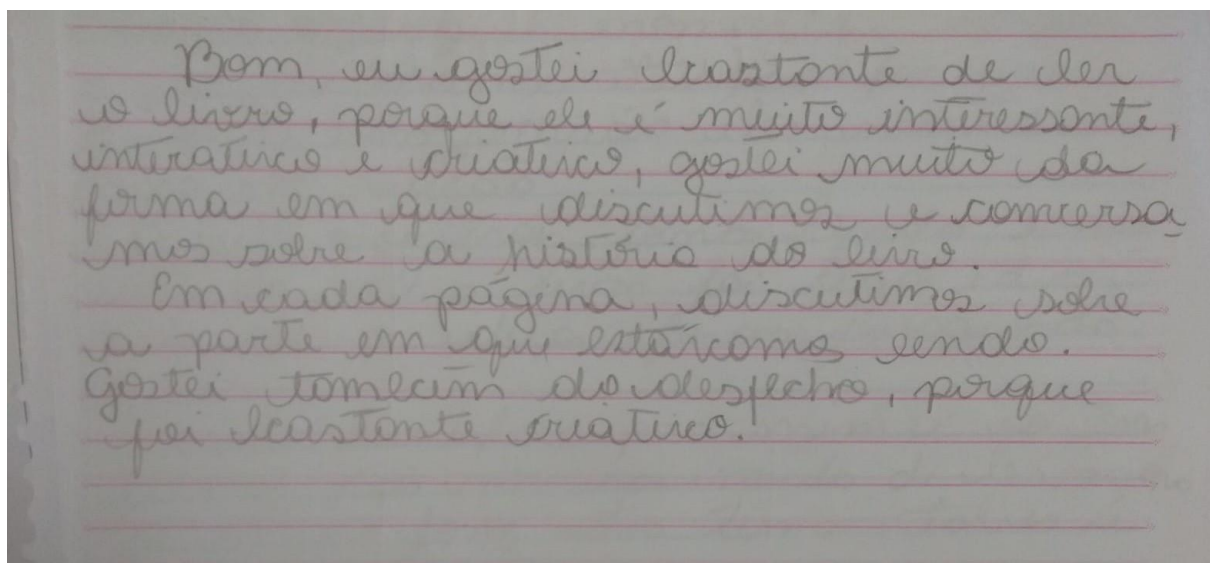 Bom, eu gostei bastante de ler
o livro, porque ele é muito interessante,
interativo e criativo, gostei muito da
forma em que discutimos e conversa
mos sobre a história do livro.
Em cada página, discutimos sobre
a parte em que estávamos lendo.
Gostei também do desfecho, porque
foi bastante criativo.